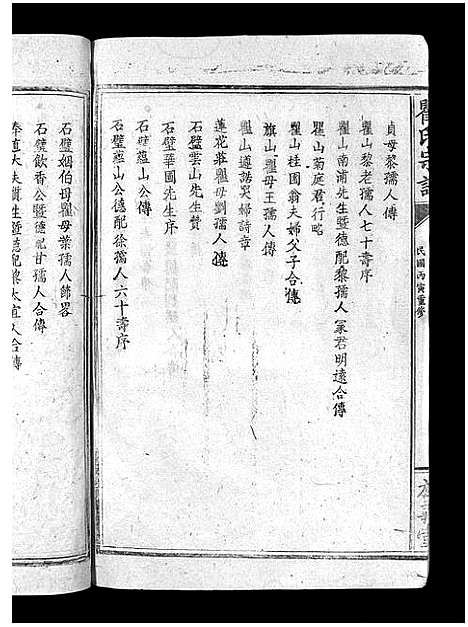 瞿氏宗譜
民國丙寅重修
貞母黎孺人傳
瞿山黎老孺人七十壽序
瞿山南浦先生暨德配黎孺人冢君明遠合傳
瞿山菊庭君行略
瞿山桂園翁夫婦父子合傳
旗山瞿母王孺人傳
瞿山遵誥吳婦詩章
蓮花莊瞿母劉孺人傳
石璧雲山先生贊
石璧華國先生序
石璧蘊山公傳
石璧蘊山公德配徐孺人六十壽序
石璧姻伯母瞿母葉孺人節畧
石璧飲香公暨德配甘孺人合傳
奉直大夫質生暨德配黎太宜人合傳